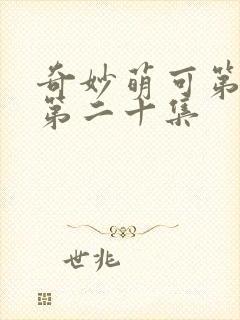 奇妙萌可第
第二十集
世兆